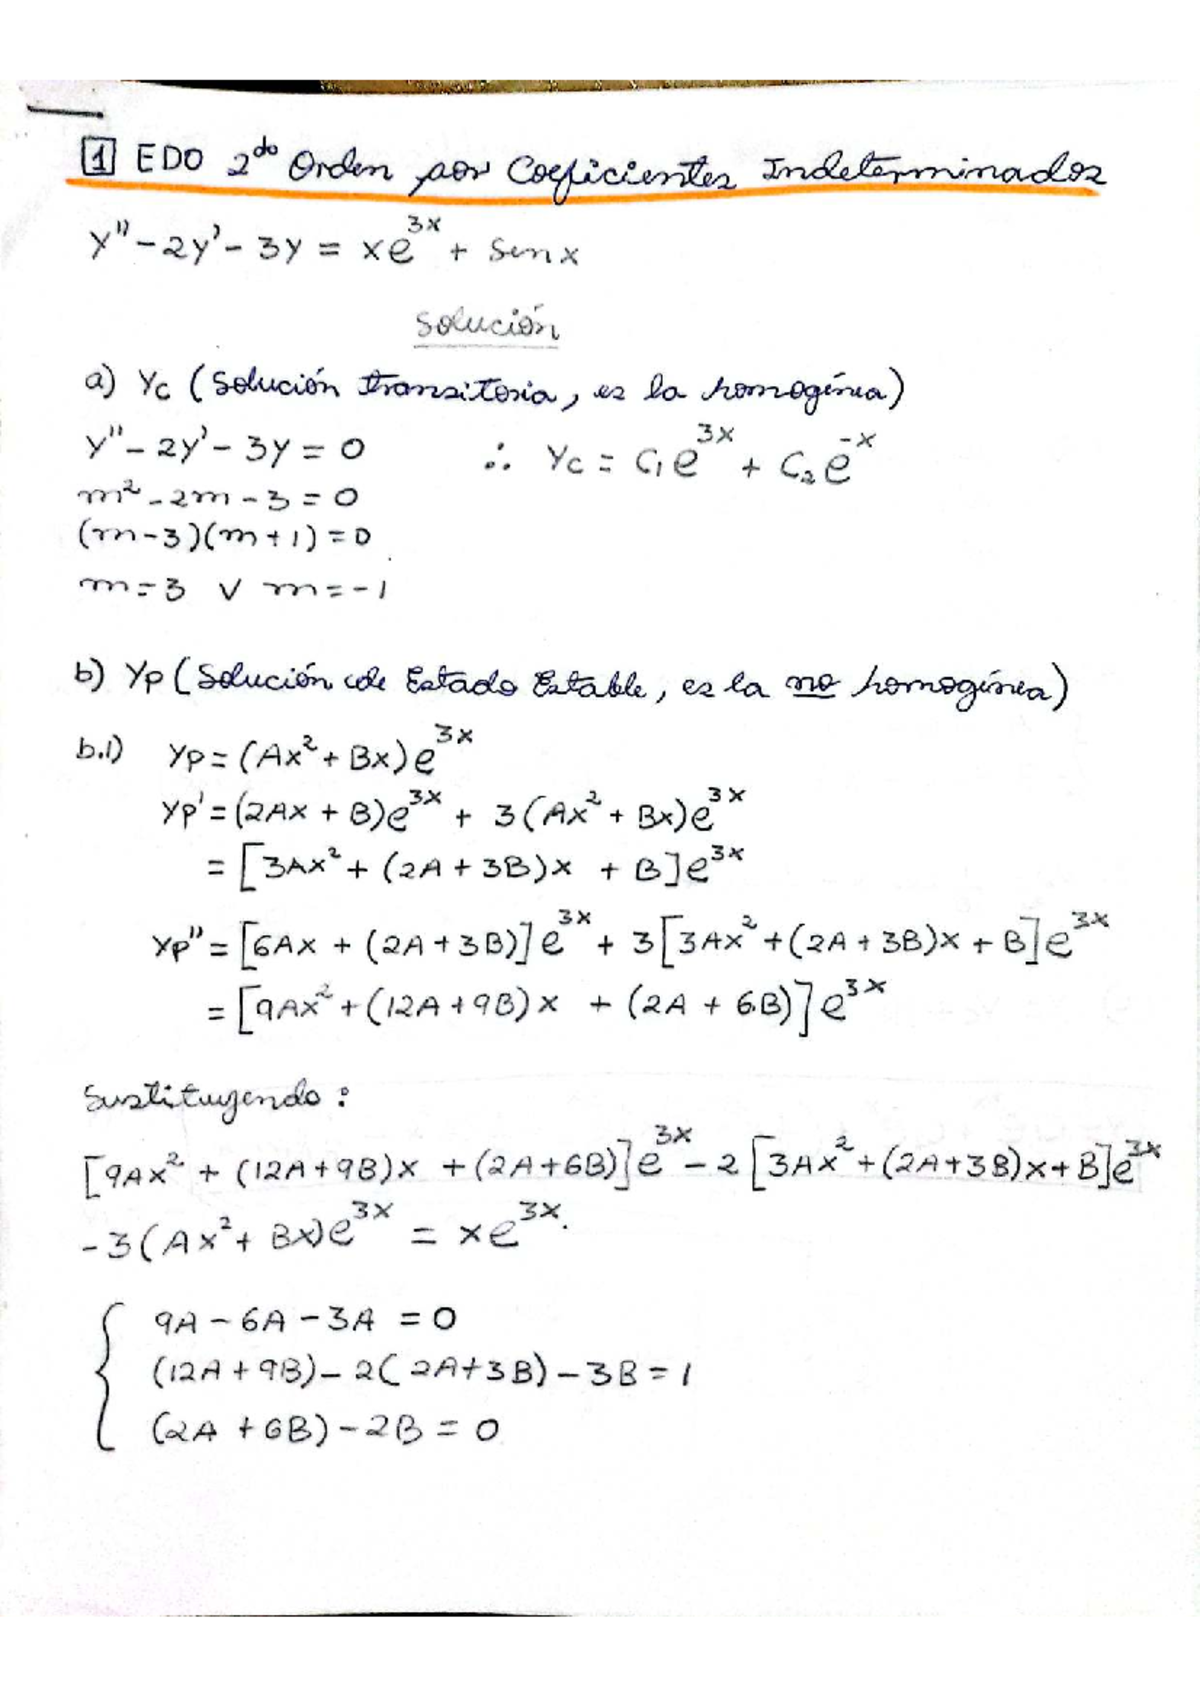 1 EDO 2do Orden por Coeficientes Indeterminados
y'' - 2y' - 3y = xe^{3x} + Sen x
Solución
a) Yc (Solución transitoria, es la homogénea)
y'' - 2y' - 3y = 0 ∴ Yc = C₁e^{3x} + C₂e^{-x}
m² - 2m - 3 = 0
(m - 3)(m + 1) = 0
m = 3 ∨ m = -1
b) Yp (Solución de Estado Estable, es la no homogénea)
b.1) Yp = (Ax² + Bx)e^{3x}
Yp' = (2Ax + B)e^{3x} + 3(Ax² + Bx)e^{3x}
= [3Ax² + (2A + 3B)x + B]e^{3x}
Yp'' = [6Ax + (2A + 3B)]e^{3x} + 3[3Ax² + (2A + 3B)x + B]e^{3x}
= [9Ax² + (12A + 9B)x + (2A + 6B)]e^{3x}
Sustituyendo:
[9Ax² + (12A + 9B)x + (2A + 6B)]e^{3x} - 2[3Ax² + (2A + 3B)x + B]e^{3x}
- 3(Ax² + Bx)e^{3x} = xe^{3x}.
9A - 6A - 3A = 0
(12A + 9B) - 2(2A + 3B) - 3B = 1
(2A + 6B) - 2B = 0